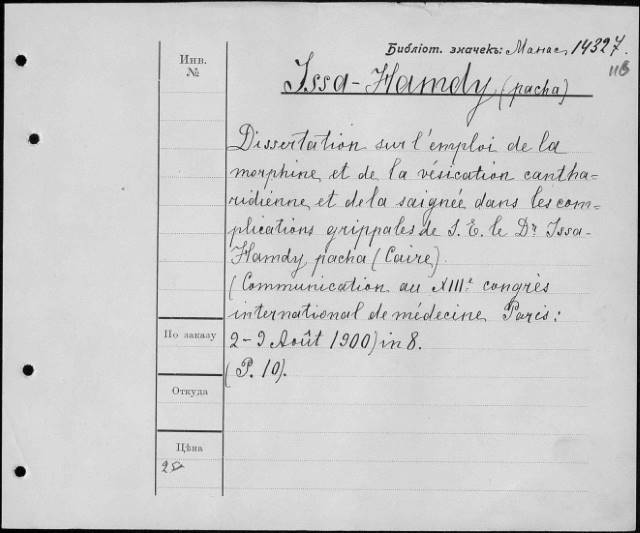 Библіот. значекъ: Манас. 14327.
118
Инв.
№
Issa-Hamdy (pacha)
Dissertation sur l'emploi de la
morphine et de la vésication cantha=
ridienne et de la saignée dans les com=
plications grippales de S. E. le Dr Issa-
Hamdy pacha (Caire).
(Communication au XIIIe congrès
international de médecine Paris:
По заказу
2-9 Août 1900) in 8.
(P. 10).
Откуда
Цѣна